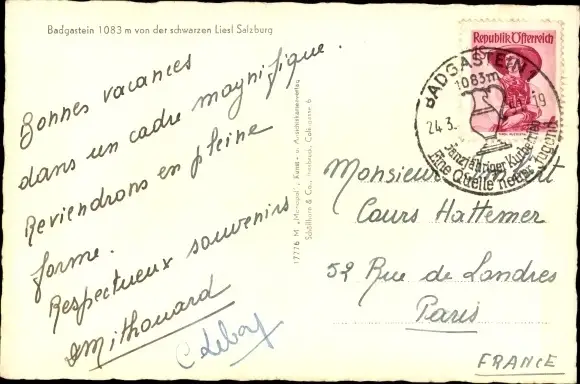 Badgastein 1083 m von der schwarzen Liesl Salzburg
Bonnes vacances
dans un cadre magnifique.
Reviendrons en pleine
forme.
Respectueux souvenirs
Mithouard
17776 M „Monopol", Kunst- u. Ansichtskartenverlag
Schöllhorn & Co., Innsbruck, Colingasse 6
Republik Österreich
BADGASTEIN 1
1083m
24.3.
19
Ganzjähriger Kurbetrieb
Eine Quelle neuer Jugend
Monsieur
Cours Hattemer
52 Rue de Londres
Paris
FRANCE